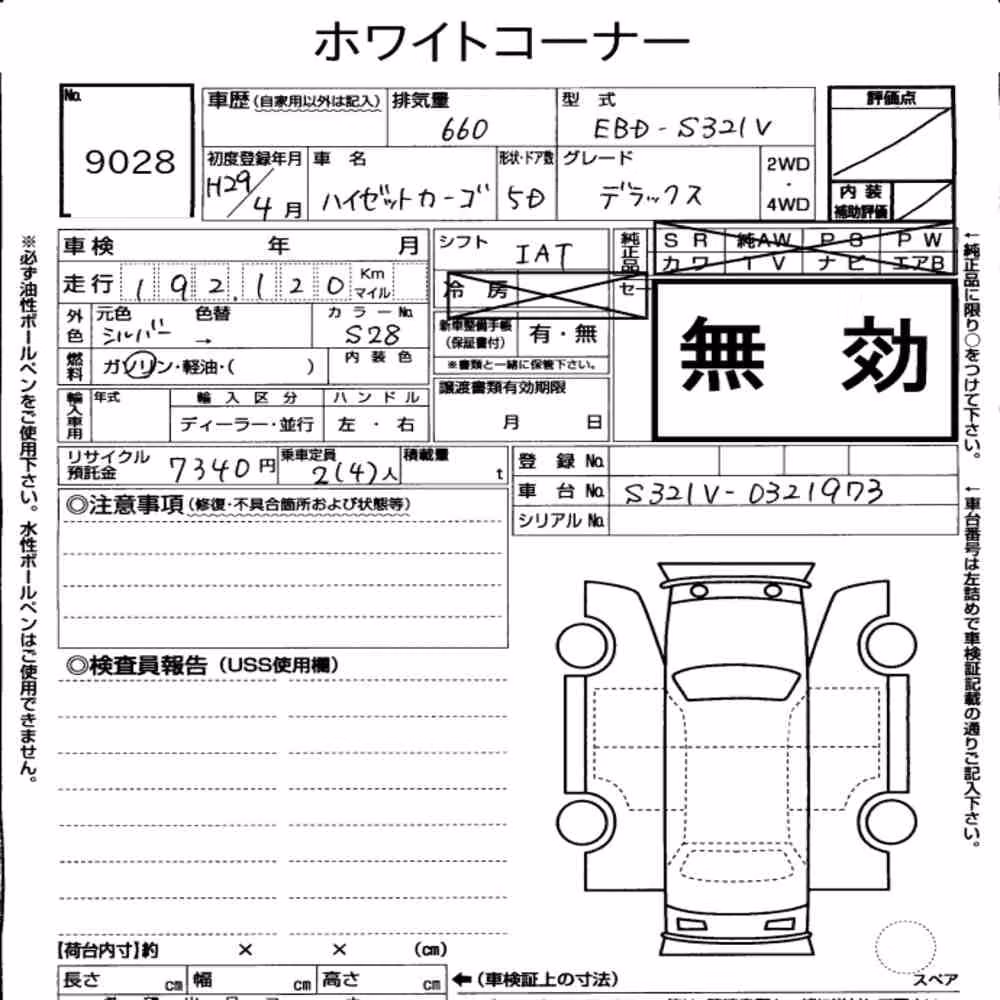 ホワイトコーナー
No. 9028
車歴(自家用以外は記入) 排気量 660 型式 EBD-S321V 評価点
初度登録年月 H29/4月 車名 ハイゼットカーゴ 形状・ドア数 5D グレード デラックス 2WD・4WD 内装補助評価
車検 年 月 シフト IAT 純正品 SR 純AW PS PW
カワ TV ナビ エアB
走行 192,120 Km マイル 冷房 セー
外色 元色 シルバー 色替 → カラーNo. S28 新車整備手帳(保証書付) 有・無
※書類と一緒に保管下さい。
無効
燃料 ガソリン・軽油・( ) 内装色
譲渡書類有効期限 月 日
輸入車用 年式 輸入区分 ハンドル
ディーラー・並行 左・右
リサイクル預託金 7340円 乗車定員 2(4)人 積載量 t
登録No.
車台No. S321V-0321973
シリアルNo.
◎注意事項(修復・不具合箇所および状態等)
◎検査員報告(USS使用欄)
【荷台内寸】約 × × (cm)
長さ cm 幅 cm 高さ cm ←(車検証上の寸法)
スペア
※必ず油性ボールペンをご使用下さい。水性ボールペンはご使用できません。
←純正品に限り○をつけて下さい。
←車台番号は左詰めで車検証記載の通りご記入下さい。